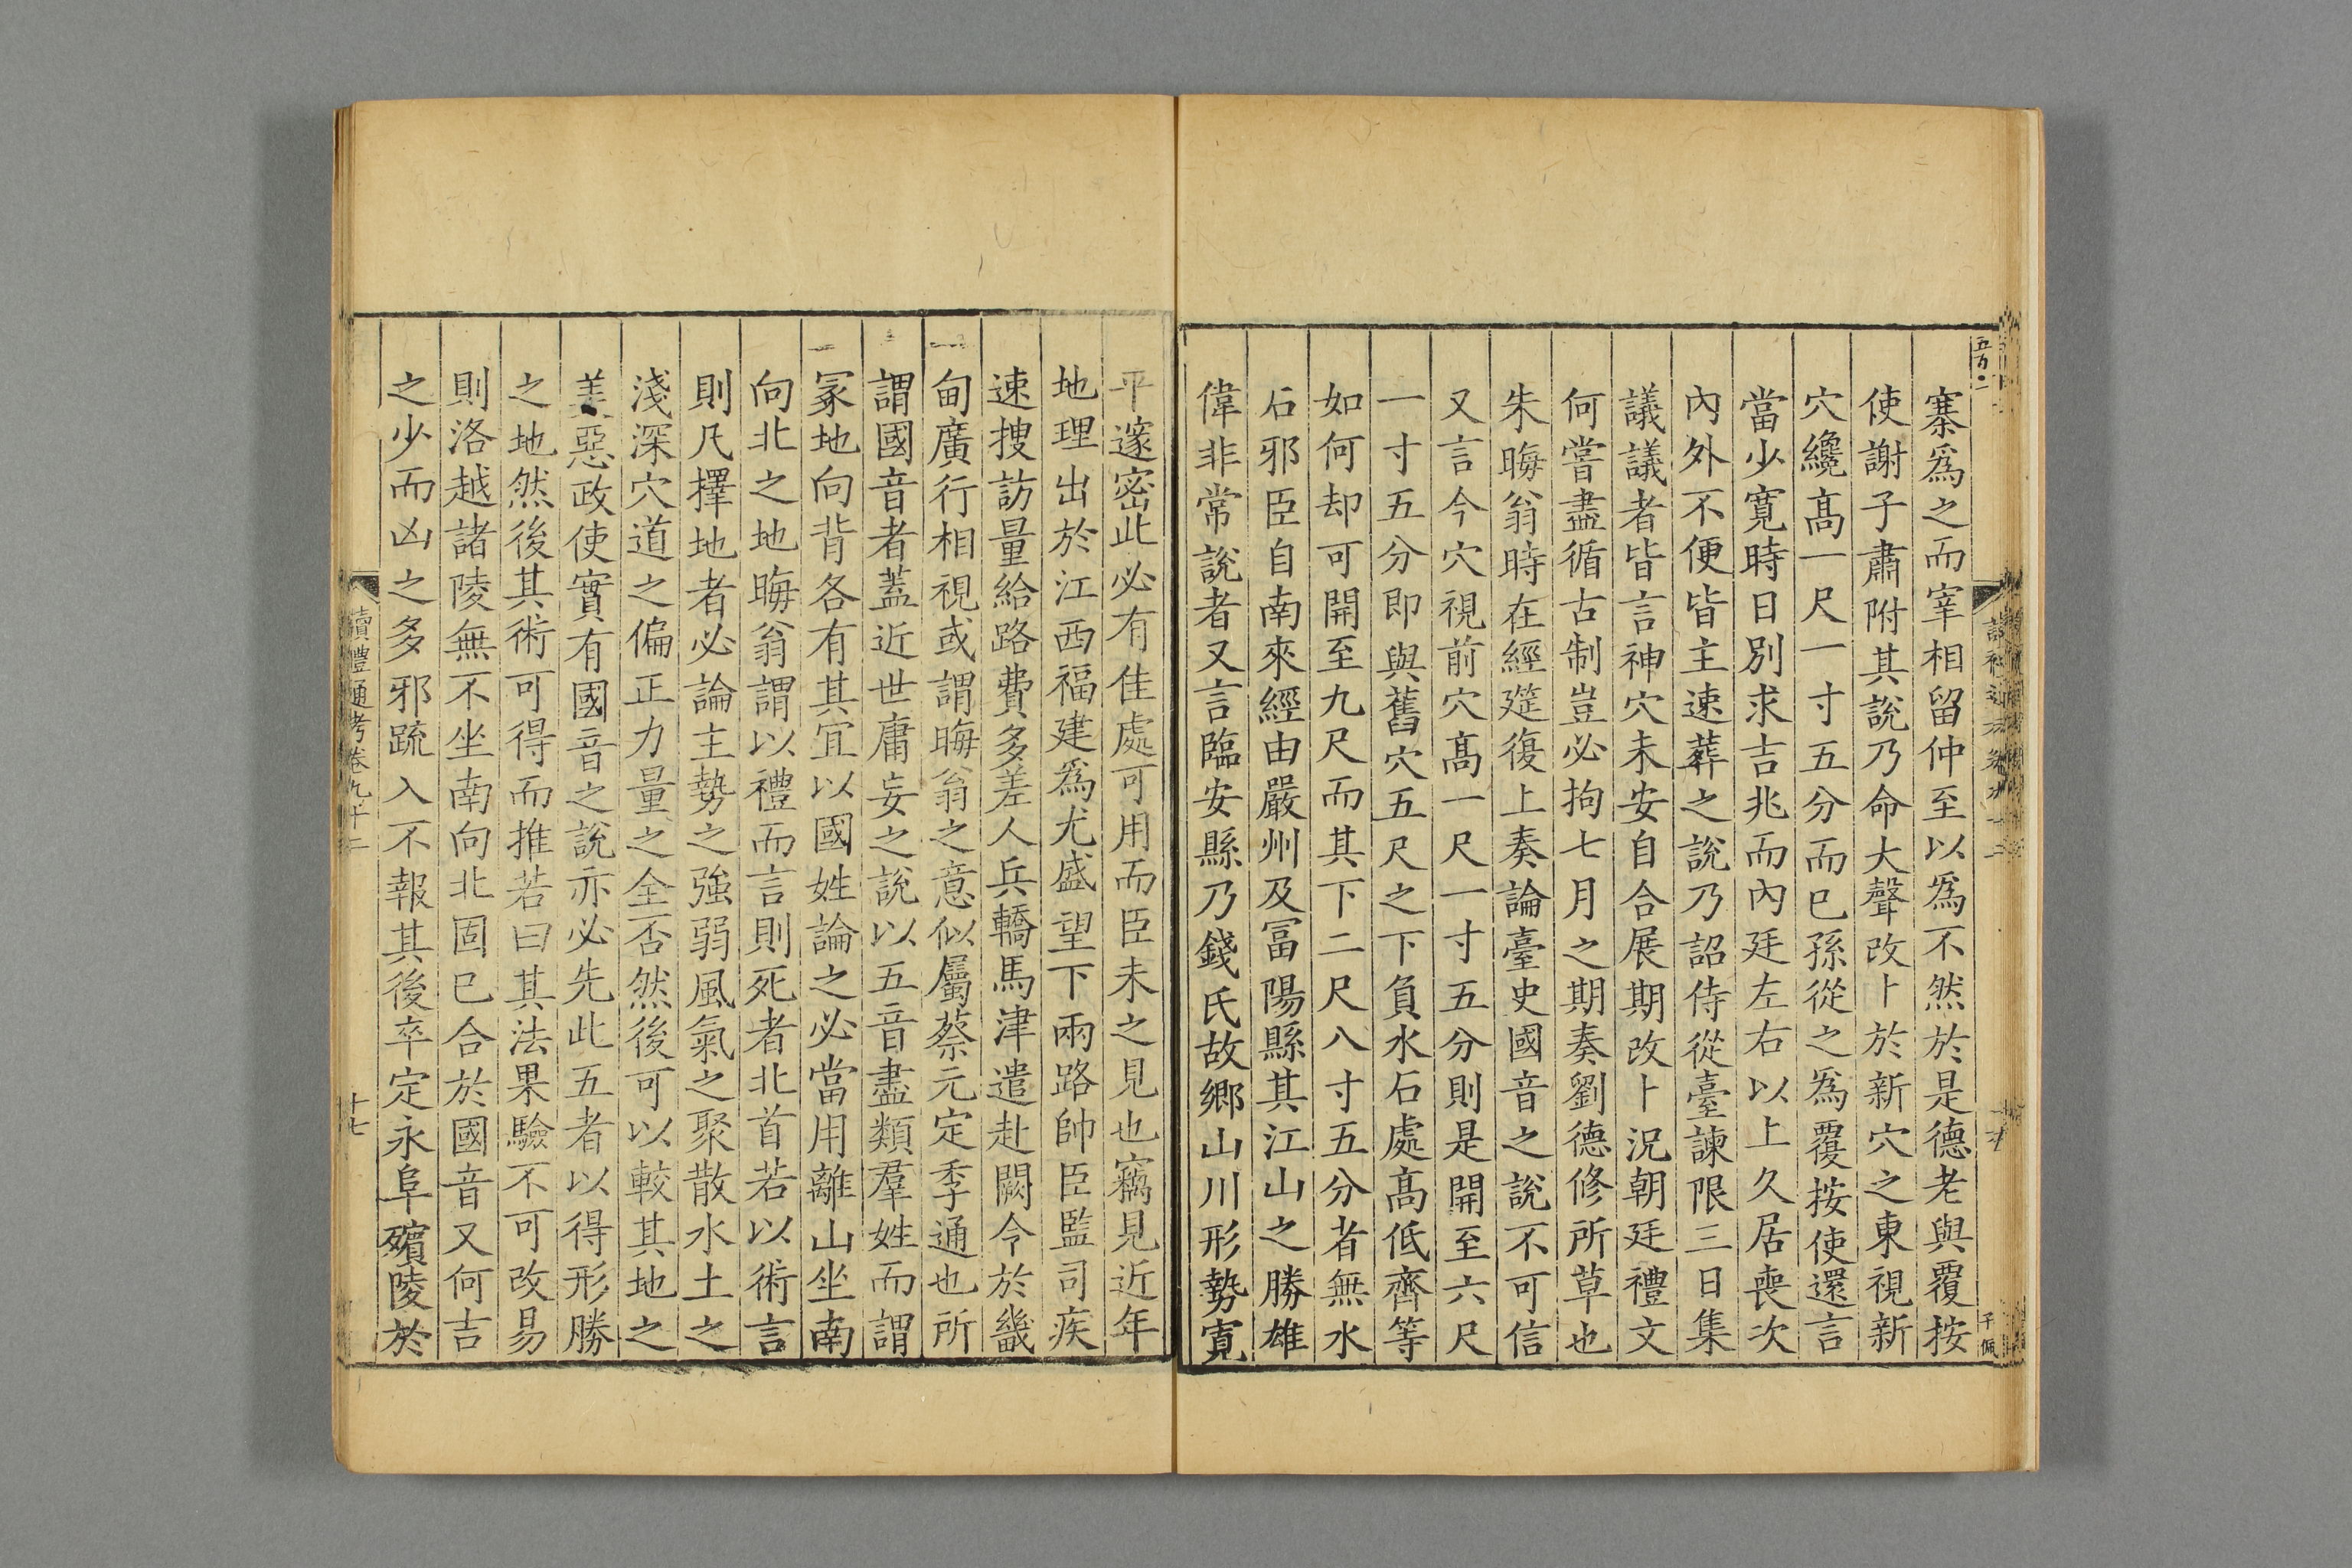 寨爲之而宰相留仲至以爲不然於是德老與覆按
使謝子肅附其說乃命大聲改卜於新穴之東視新
穴纔高一尺一寸五分而已孫從之爲覆按使還言
當少寬時日別求吉兆而內廷左右以上久居喪次
內外不便皆主速葬之說乃詔侍從臺諫限三日集
議議者皆言神穴未安自合展期改卜況朝廷禮文
何嘗盡循古制豈必拘七月之期奏劉德修所草也
朱晦翁時在經筵復上奏論臺史國音之說不可信
又言今穴視前穴高一尺一寸五分則是開至六尺
一寸五分即與舊穴五尺之下負水石處高低齊等
如何却可開至九尺而其下二尺八寸五分者無水
石邪臣自南來經由嚴州及富陽縣其江山之勝雄
偉非常說者又言臨安縣乃錢氏故鄉山川形勢寬
平邃密此必有佳處可用而臣未之見也竊見近年
地理出於江西福建爲尤盛望下兩路帥臣監司疾
速搜訪量給路費多差人兵轎馬津遣赴闕今於畿
甸廣行相視或謂晦翁之意似屬蔡元定季通也所
謂國音者蓋近世庸妄之說以五音盡類羣姓而謂
冢地向背各有其宜以國姓論之必當用離山坐南
向北之地晦翁謂以禮而言則死者北首若以術言
則凡擇地者必論主勢之強弱風氣之聚散水土之
淺深穴道之偏正力量之全否然後可以較其地之
美惡政使實有國音之說亦必先此五者以得形勝
之地然後其術可得而推若曰其法果驗不可改易
則洛越諸陵無不坐南向北固已合於國音又何吉
之少而凶之多邪疏入不報其後卒定永阜殯陵於
讀禮通考卷九十二
十七
子佩